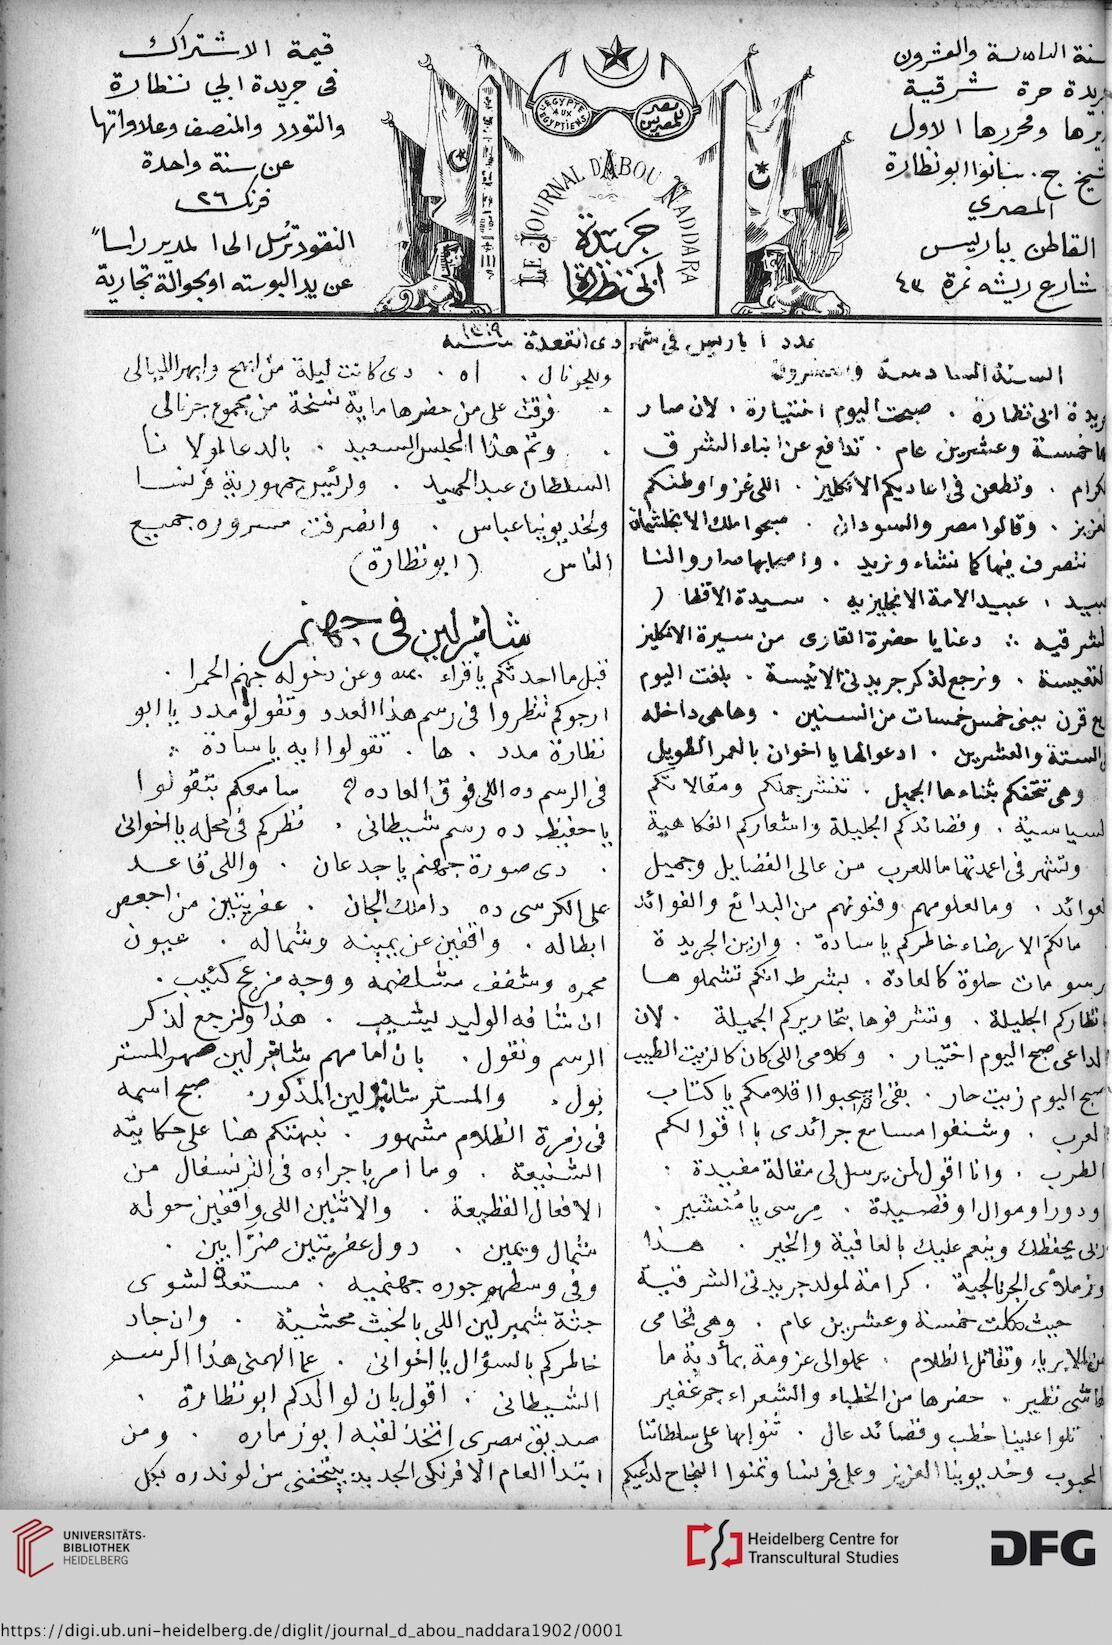 سنة السادسة والعشرون
جريدة حرة شرقية
مديرها ومحررها الاول
شيخ ج. سانوا ابو نظارة
المصري
القاطن بباريس
شارع ريشه نمرة ٤٣
L'EGYPTE AUX EGYPTIENS
مصر للمصريين
LE JOURNAL D'ABOU NADDARA
جريدة
ابي نظارة
قيمة الاشتراك
فى جريدة ابي نظارة
والتودد والمنصف وعلاواتها
عن سنة واحدة
فرنك ٢٦
النقود ترسل الى المدير راساً
عن يد البوسته او بحوالة تجارية
عدد ١ باريس فى شهر ذى القعدة سنة ١٣١٩
السنة السادسة والعشرون
جريدة ابى نظارة . صبحت اليوم اختيارة . لان صار
خمسة وعشرين عام . تدافع عن ابناء الشرق
الكرام . وتطعن فى اعاديكم الانكليز . اللى غزوا وطنكم
العزيز . وقالوا مصر والسودان . صبحوا ملك الانجلشمان
نتصرف فيها كما نشاء ونريد . واصحابها صاروا لنا
عبيد . عبيد الامة الانجليزيه . سيدة الاقطار
الشرقيه . دعنا يا حضرة القارى من سيرة الانكليز
. ونرجع لذكر جريدتى الانيسة . بلغت اليوم
ربع قرن يعنى خمس خمسات من السنين . وها هى داخله
فى الستة والعشرين . ادعوا لها يا اخوان بالعمر الطويل
وهى تتحفكم بثناءها الجميل . تنشر جملكم ومقالاتكم
السياسية . وقصائدكم الجليلة واشعاركم الفكاهية
وتشهر فى اعمدتها ما للعرب من عالى الفضايل وجميل
العوائد . وما لعلومهم وفنونهم من البدائع والفوائد
. ما لكم الا رضاء خاطركم يا سادة . وازين الجريدة
رسومات حلوة كالعادة . بشرط انكم تشملوها
بانظاركم الجليلة . وتشرفوها بتحاريركم الجميلة . لان
الداعى صبح اليوم اختيار . وكلامى اللى كان كالزيت الطيب
صبح اليوم زيت حار . بقى اسحبوا اقلامكم يا كتاب
العرب . وشنفوا مسامع جرائدى باقوالكم
الطرب . وانا اقول لمن يرسل لى مقالة مفيدة .
ودور او موال او قصيدة . مرسى يا منشير .
ربى يحفظك وينعم عليك بالعافية والخير . هذا
وزملاءى الجرنالجية . كرامة لمولد جريدتى الشرقية
حيث كملت خمسة وعشرين عام . وهى تحامى
عن الابرياء وتقاتل الظلام . عملوا لى عزومة بمأدبة ما
لهاشى نظير . حضرها من الخطباء والشعراء جم غفير
. تلوا علينا خطب وقصائد عال . ثنوا بها على سلطاننا
المحبوب وخديوينا العزيز وعلى فرنسا وتمنوا النجاح لداعيكم
وللجرنال . اه . دى كانت ليلة من ابهج وابهر الليالى
. فرقت على من حضرها ماية نسخة من مجموع جرنالى
. وتم هذا المجلس السعيد . بالدعا لمولانا
السلطان عبد الحميد . ولرئيس جمهورية فرنسا
ولخديوينا عباس . وانصرفت مسروره جميع
الناس (ابو نظارة)
شامبرلين فى جهنم
قبل ما احدثكم يا قراء عنه وعن دخوله جهنم الحمرا .
ارجوكم تنظروا فى رسم هذا العدد وتقولوا مدد يا ابو
نظارة مدد . ها . تقولوا ايه يا سادة
فى الرسم ده اللى فوق العاده ؟ سامعكم بتقولوا
يا حفيظ ده رسم شيطانى . نظركم فى محله يا اخوانى
. دى صورة جهنم يا جدعان . واللى قاعد
على الكرسى ده دا ملك الجان . عفريتين من اجعص
ابطاله . واقفين عن يمينه وشماله . عيون
محمره وشفف مشلضمه ووجه مزعج كئيب .
ان شافه الوليد ليشيب . هذا ولنرجع لذكر
الرسم ونقول . بان امامهم شامبرلين صهر المستر
بول . والمستر شامبرلين المذكور . صبح اسمه
فى زمرة الظلام مشهور . نبهتكم هنا على حكايته
الشنيعة . وما امر باجراءه فى الترنسفال من
الافعال الفظيعة . والاثنين اللى واقفين حوله
شمال ويمين . دول عفريتين ضرابين .
وفى وسطهم جوره جهنميه . مستعدة لشوى
جثة شمبرلين اللى بالخبث محشية . وان جاد
خاطركم بالسؤال يا اخوانى . عما الهمنى هذا الرسم
الشيطانى . اقول بان لوالدكم ابو نظارة .
صديق مصرى اتخذ لقبه ابو زماره . ومن
ابتدا العام الافرنكى الجديد يتحفنى من لوندره بكل
UNIVERSITÄTS-
BIBLIOTHEK
HEIDELBERG
Heidelberg Centre for
Transcultural Studies
DFG
https://digi.ub.uni-heidelberg.de/diglit/journal_d_abou_naddara1902/0001